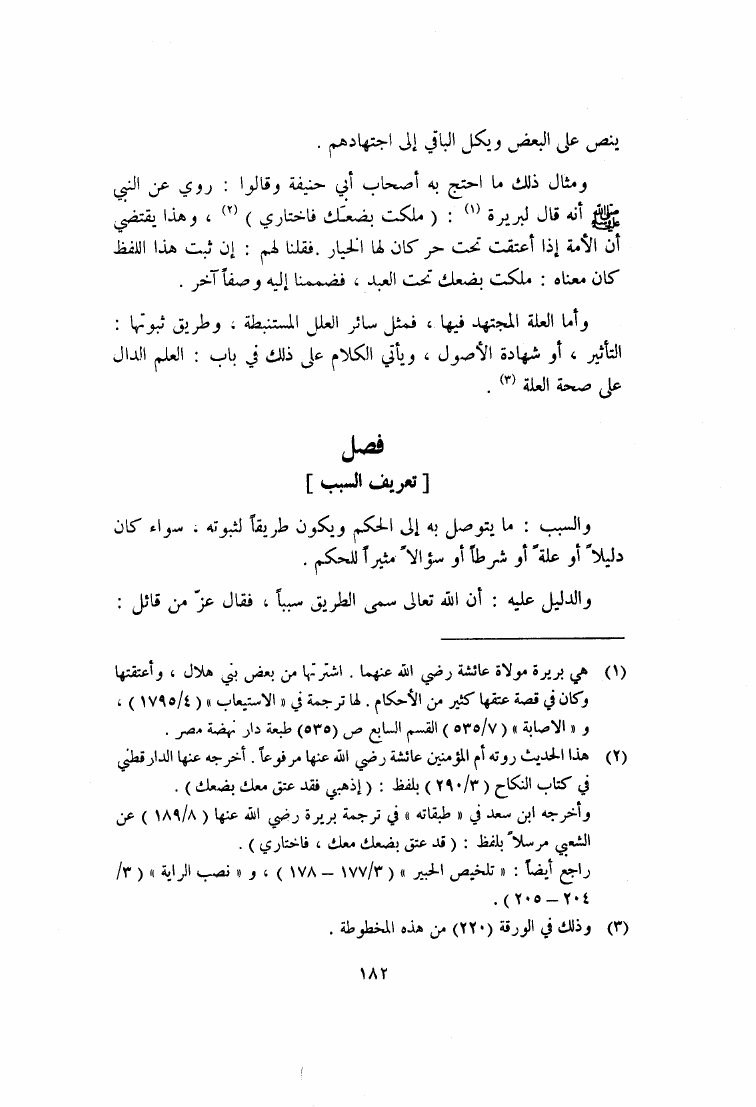 ينص على البعض ويكل الباقي إلى اجتهادهم .
ومثال ذلك ما احتج به أصحاب أبي حنيفة وقالوا : روي عن النبي
ﷺ أنه قال لبريرة (١) : ( ملكت بضعك فاختاري ) (٢) ، وهذا يقتضي
أن الأمة إذا أعتقت تحت حر كان لها الخيار .فقلنا لهم : إن ثبت هذا اللفظ
كان معناه : ملكت بضعك تحت العبد ، فضممنا إليه وصفاً آخر .
وأما العلة المجتهد فيها ، فمثل سائر العلل المستنبطة ، وطريق ثبوتها :
التأثير ، أو شهادة الأصول ، ويأتي الكلام على ذلك في باب : العلم الدال
على صحة العلة (٣) .
فصل
[ تعريف السبب ]
والسبب : ما يتوصل به إلى الحكم ويكون طريقاً لثبوته ، سواء كان
دليلاً أو علةً أو شرطاً أو سؤالاً مثيراً للحكم .
والدليل عليه : أن الله تعالى سمى الطريق سبباً ، فقال عزّ من قائل :
(١) هي بريرة مولاة عائشة رضي الله عنهما . اشترتها من بعض بني هلال ، وأعتقتها
وكان في قصة عتقها كثير من الأحكام . لها ترجمة في « الاستيعاب » ( ١٧٩٥/٤ ) ،
و « الاصابة » ( ٥٣٥/٧ ) القسم السابع ص (٥٣٥) طبعة دار نهضة مصر .
(٢) هذا الحديث روته أم المؤمنين عائشة رضي الله عنها مرفوعاً . أخرجه عنها الدارقطني
في كتاب النكاح ( ٢٩٠/٣ ) بلفظ : ( إذهبي فقد عتق معك بضعك ) .
وأخرجه ابن سعد في « طبقاته » في ترجمة بريرة رضي الله عنها ( ١٨٩/٨ ) عن
الشعبي مرسلاً بلفظ : ( قد عتق بضعك معك ، فاختاري ) .
راجع أيضاً : « تلخيص الحبير » ( ١٧٧/٣ – ١٧٨ ) ، و « نصب الراية » ( ٣/
٢٠٤ – ٢٠٥ ) .
(٣) وذلك في الورقة (٢٢٠) من هذه المخطوطة .
١٨٢